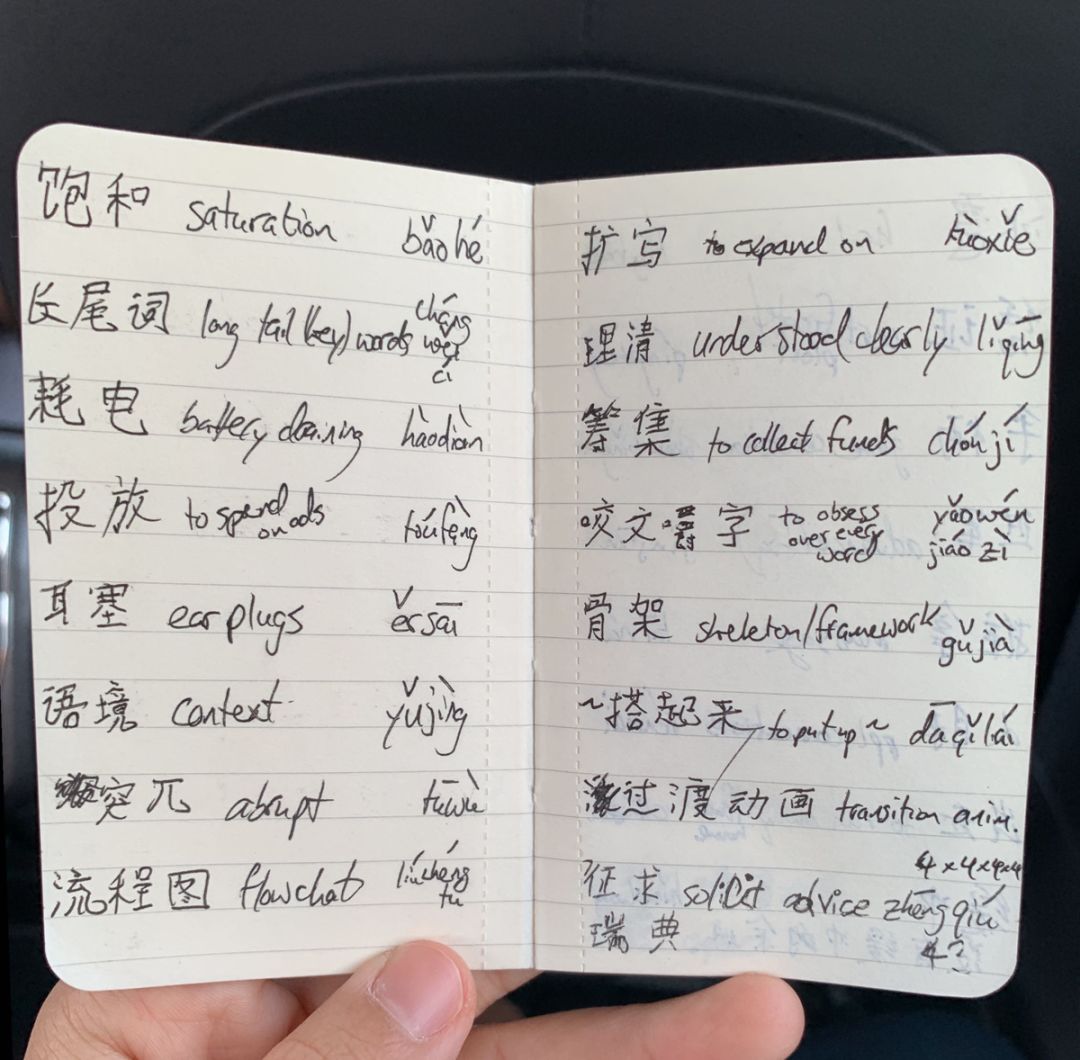 饱和 saturation bǎohé
长尾词 long tail (key) words cháng wěi cí
耗电 battery draining hàodiàn
投放 to spend on ads tóufàng
耳塞 earplugs ěrsāi
语境 context yǔjìng
突兀 abrupt tūwù
流程图 flowchat liúchéng tú
扩写 to expand on kuòxiě
理清 understood clearly lǐqīng
筹集 to collect funds chóují
咬文嚼字 to obsess over every word yǎowén jiáozì
骨架 skeleton/framework gǔjià
~搭起来 to put up ~ dāqǐlái
过渡动画 transition anim.
4x4x4x4
征求 solicit advice zhēngqiú
瑞典 4?